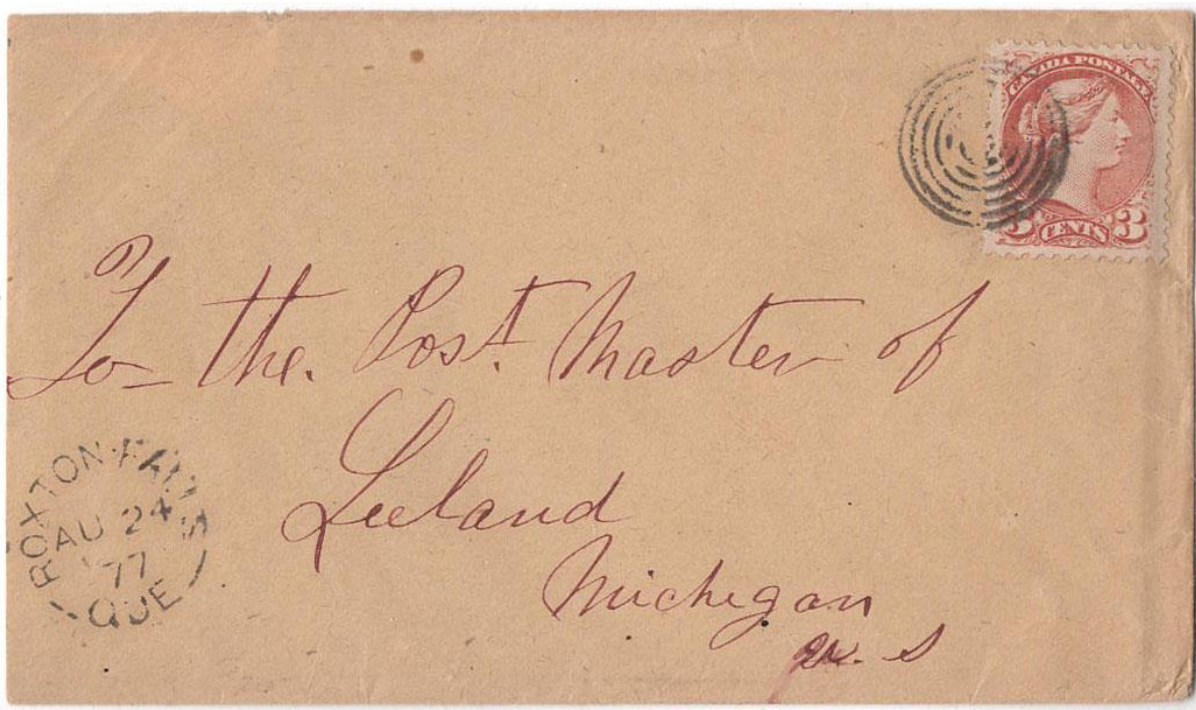 CANADA POSTAGE
3 CENTS 3
To the. Post. Master of
Leland
Michigan
U. S
ROXTON-FALLS
AU 24
77
QUE